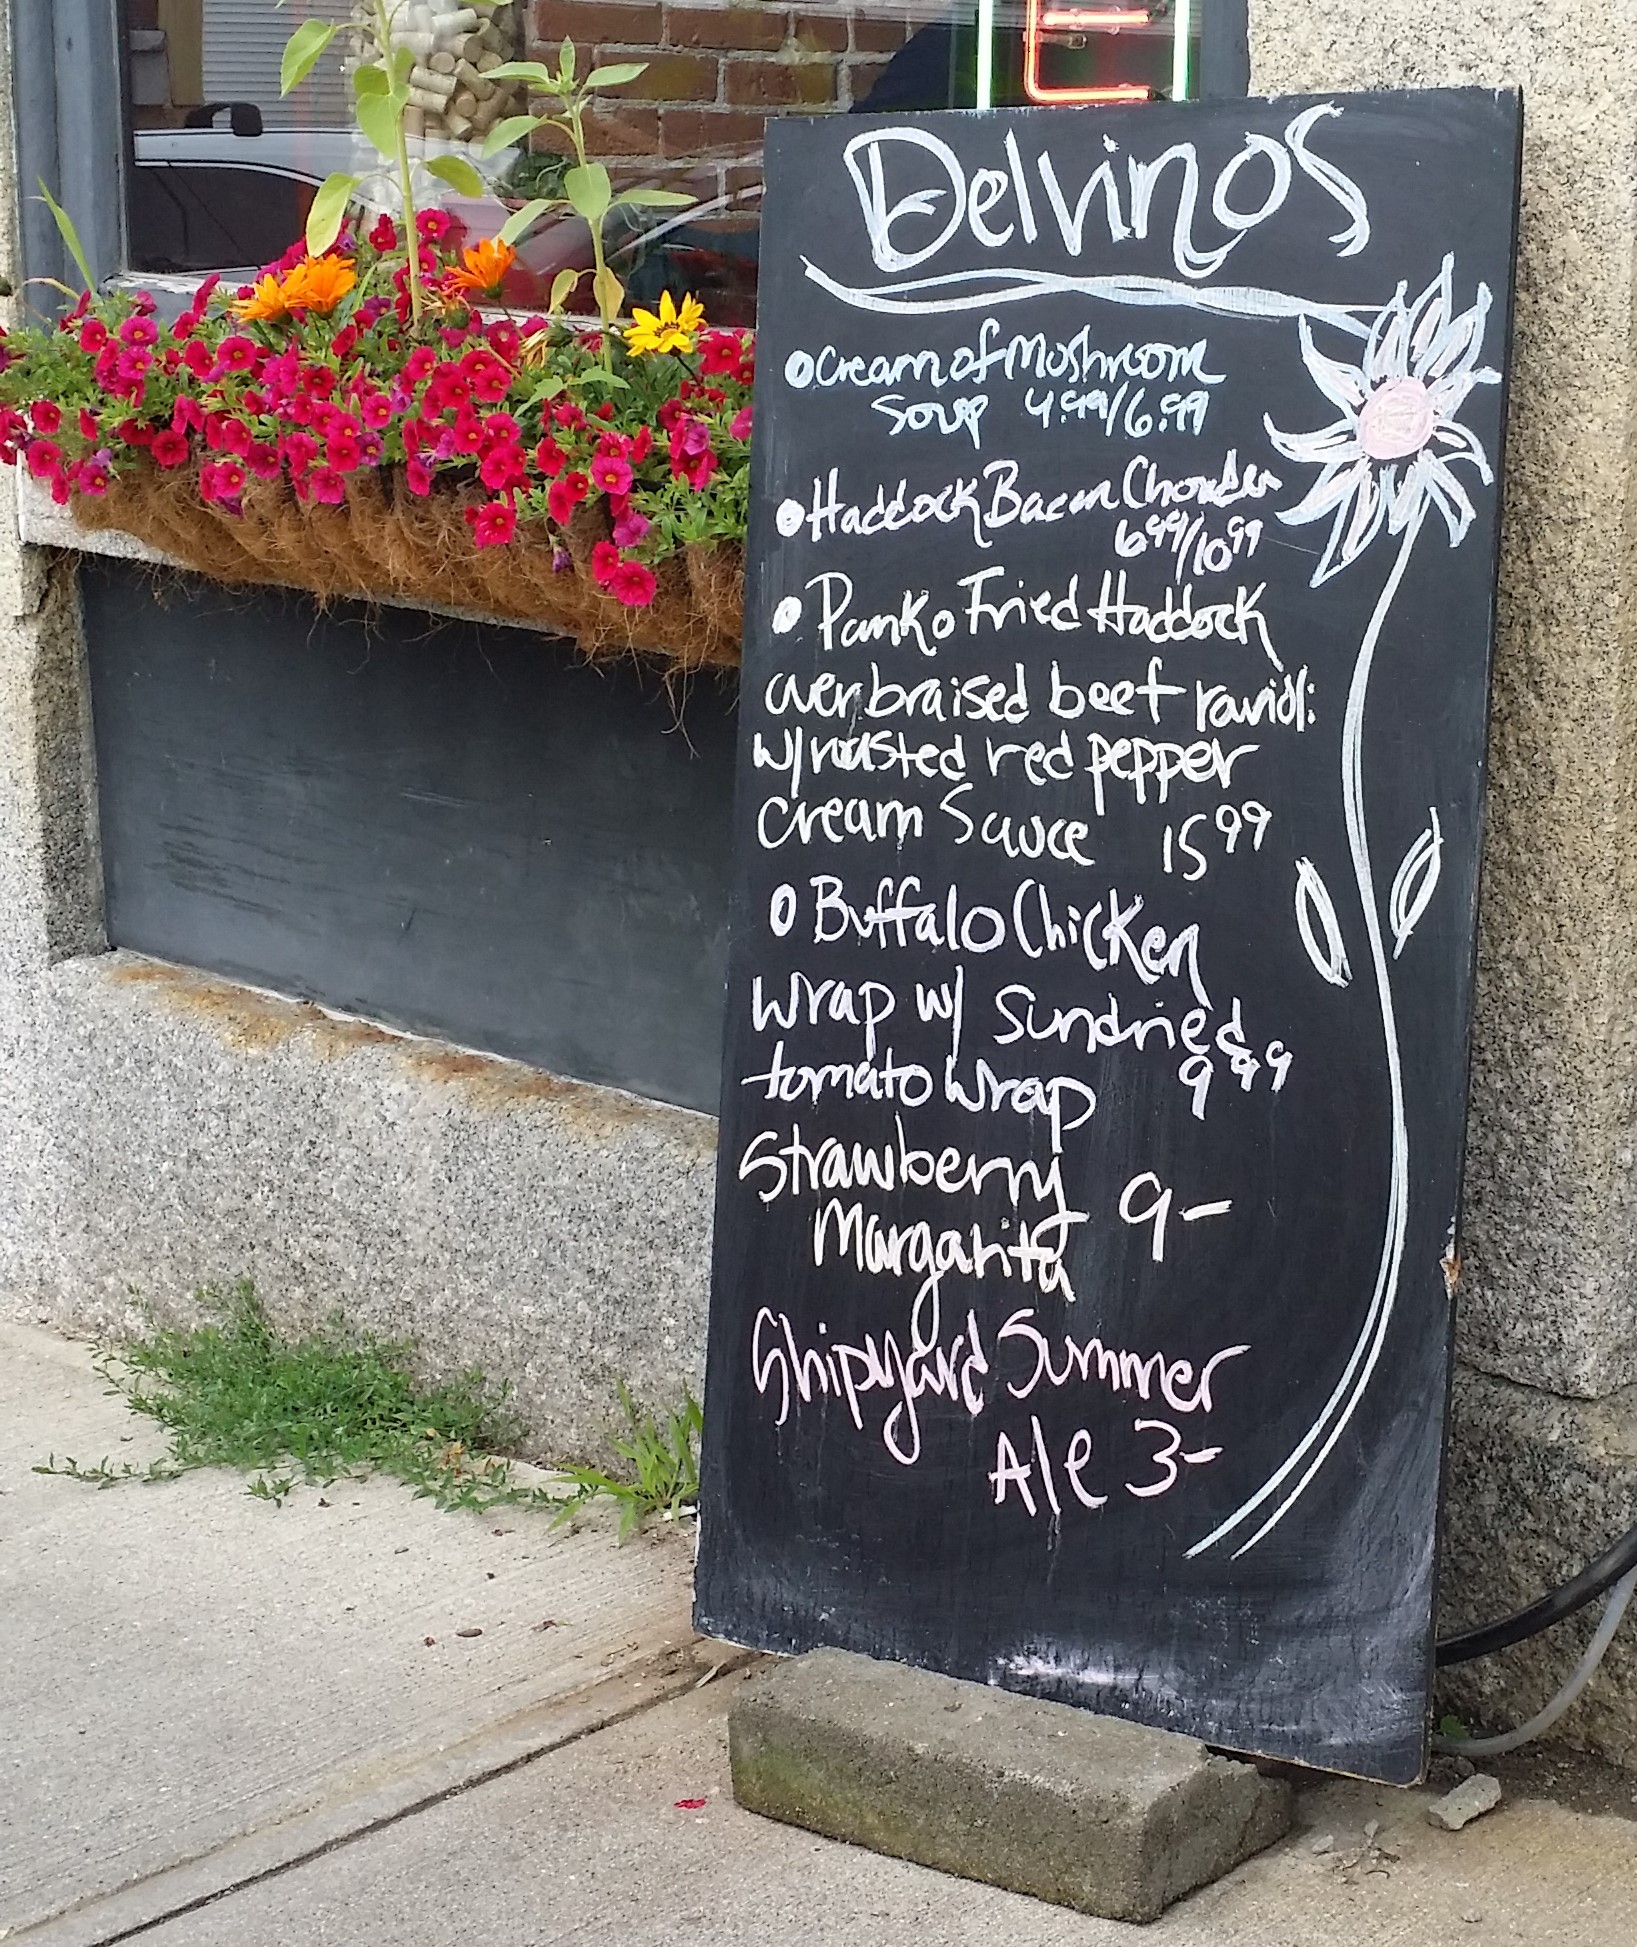 Delvinos
Cream of Mushroom
Soup 4.99/6.99
Haddock Bacon Chowder
6.99/10.99
Panko Fried Haddock
over braised beef ravioli
w/roasted red pepper
cream Sauce 15.99
Buffalo Chicken
wrap w/ Sundried
tomato wrap 9.99
Strawberry
Margarita 9-
Shipyard Summer
Ale 3-